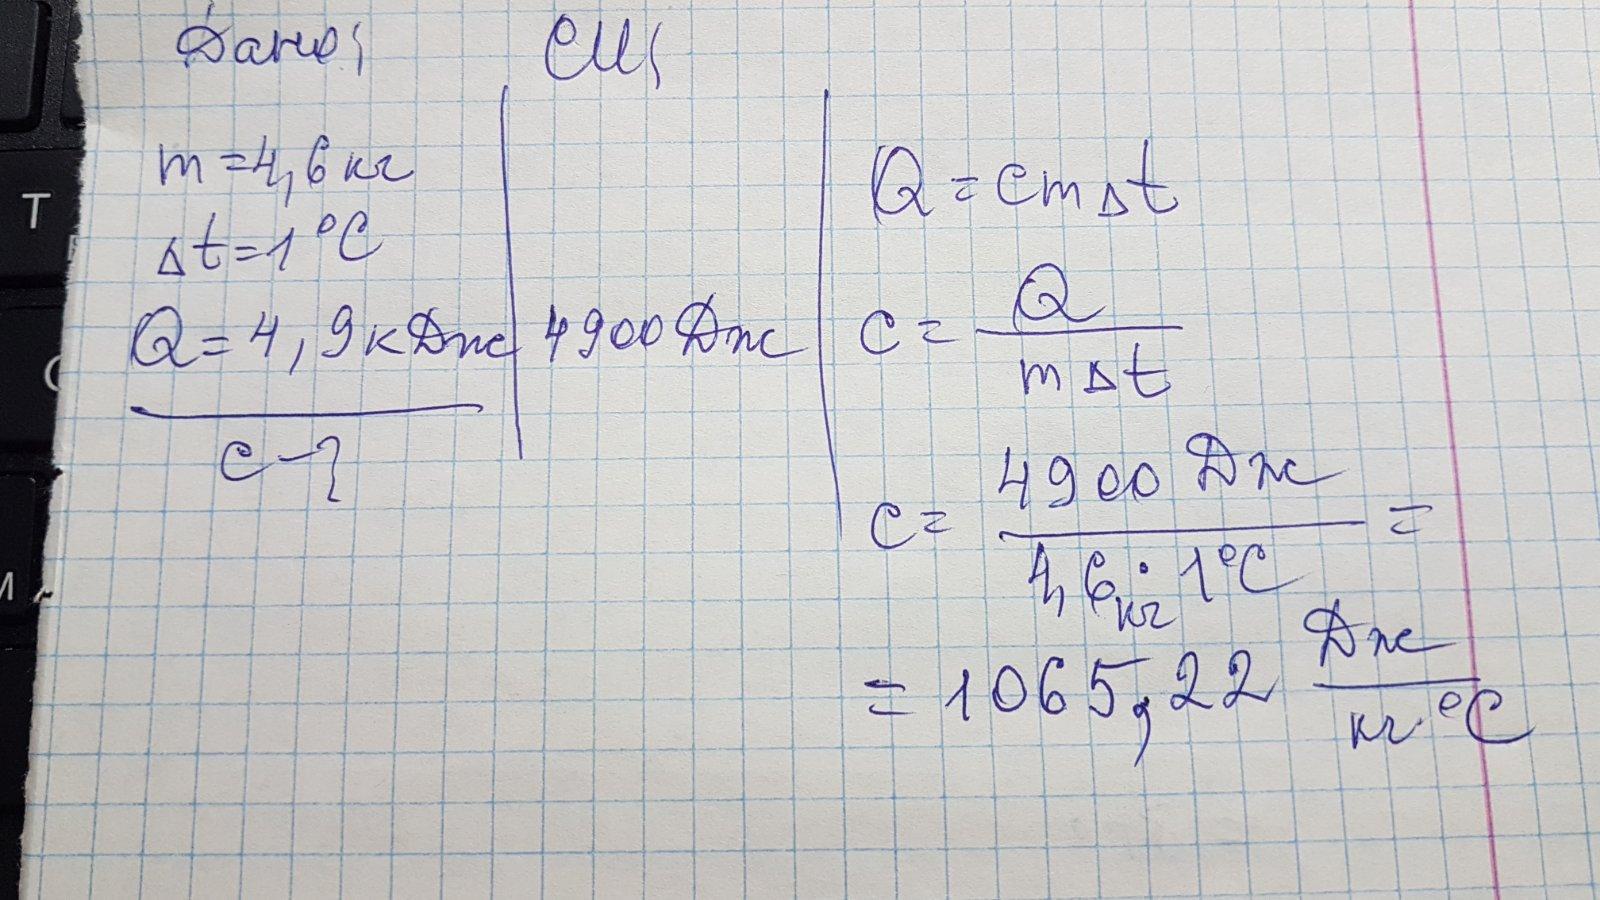 Дано; СИ;
m = 4,6 кг
Δt = 1 °C
Q = 4,9 кДж 4900 Дж
c - ?
Q = cmΔt
c = Q / mΔt
c = 4900 Дж / 4,6 кг · 1°C =
= 1065,22 Дж / кг · °C
Т